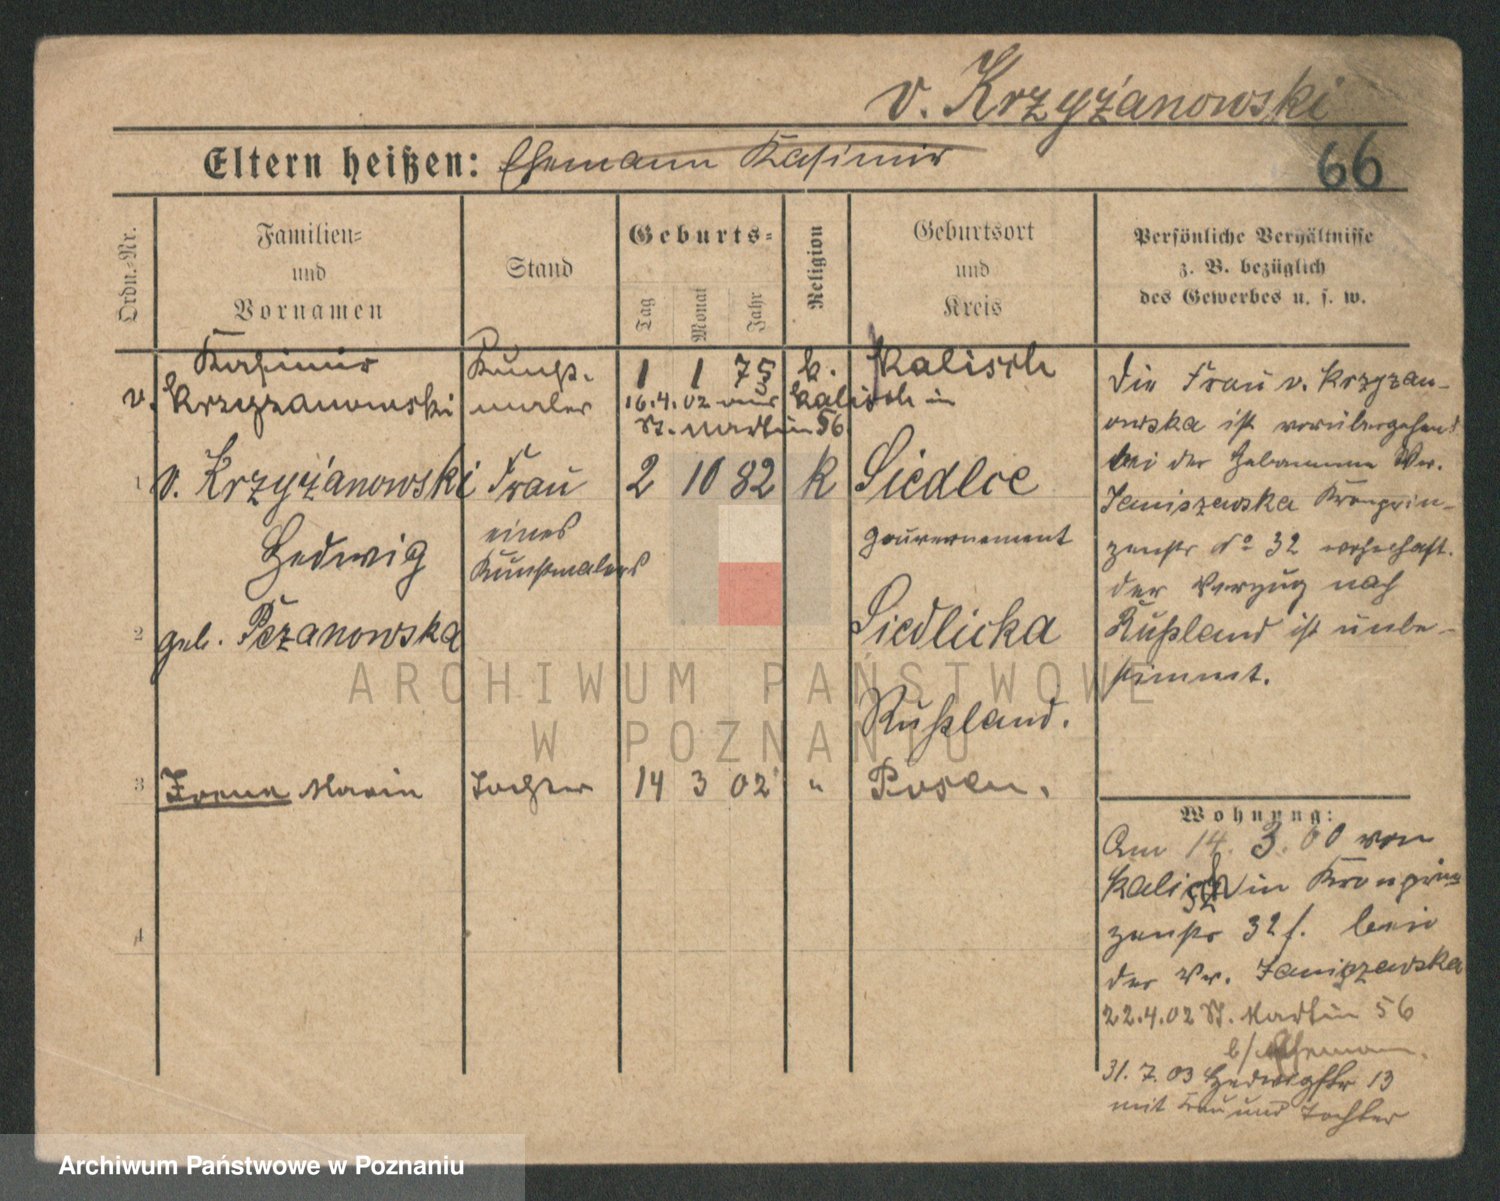 v. Krzyżanowski
Eltern heißen: Ehemann Kasimir
66
Ordn.-Nr.
Familien-
und
Vornamen
Stand
Geburts-
Tag
Monat
Jahr
Religion
Geburtsort
und
Kreis
Persönliche Verhältnisse
z. B. bezüglich
des Gewerbes u. s. w.
Kasimir Kunst- 1 1 75 k. Kalisch
v. Krzyzanowski maler 16.4.02 aus Kalisch in
St. Martin 56
1 v. Krzyżanowski Frau 2 10 82 k Siedlce
Hedwig eines Gouvernement
Kunstmalers
2 geb. Pezanowska Siedlicka
Rußland.
3 Irena Maria Tochter 14 3 02 " Posen.
4
Die Frau v. Krzyzan-
owska ist vorübergehend
bei der Hebamme Ww.
Janiszewska Kronprin-
zenstr No 32 wohnhaft.
der Verzug nach
Rußland ist unbe-
stimmt.
Wohnung:
Am 14. 3. 00 von
Kalisch in Kronprin
zenstr 32 f. bei
der Ww. Janiszewska
22.4.02 St. Martin 56
b/ Ehemann.
31.7.03 Hedwigstr 13
mit Frau und Tochter
ARCHIWUM PAŃSTWOWE
W POZNANIU
Archiwum Państwowe w Poznaniu